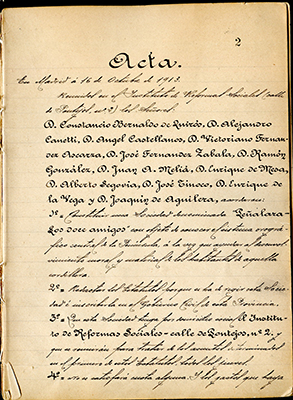 2
Acta.
En Madrid á 16 de Octubre de 1913.
Reunidos en el Instituto de Reformas Sociales (calle
de Pontejos nº 2) los Señores
D. Constancio Bernaldo de Quirós, D. Alejandro
Canetti, D. Angel Castellanos, D. Victoriano Fernan-
dez Ascarza, D. José Fernandez Zabala, D. Ramón
González, D. Juan A. Meliá, D. Enrique de Mesa,
D. Alberto Segovia, D. José Tinoco, D. Enrique de
la Vega y D. Joaquin de Aguilera, acordaron:
1º= Constituir una Sociedad denominada "Peñalara-
Los doce amigos" con objeto de
central de la Península á la que
moral y material de los habitantes de aquella
cordillera.
2º= Redactar los Estatutos porque se ha de regir esta Socie-
dad é inscribirla en el Gobierno Civil de esta Provincia.
3º= Que esta Sociedad tenga por domicilio social el Instituto
de Reformas Sociales-calle de Pontejos, nº 2, y
que se reunirán para tratar de los asuntos
4º= No se satisfará cuota alguna y los gastos que haya